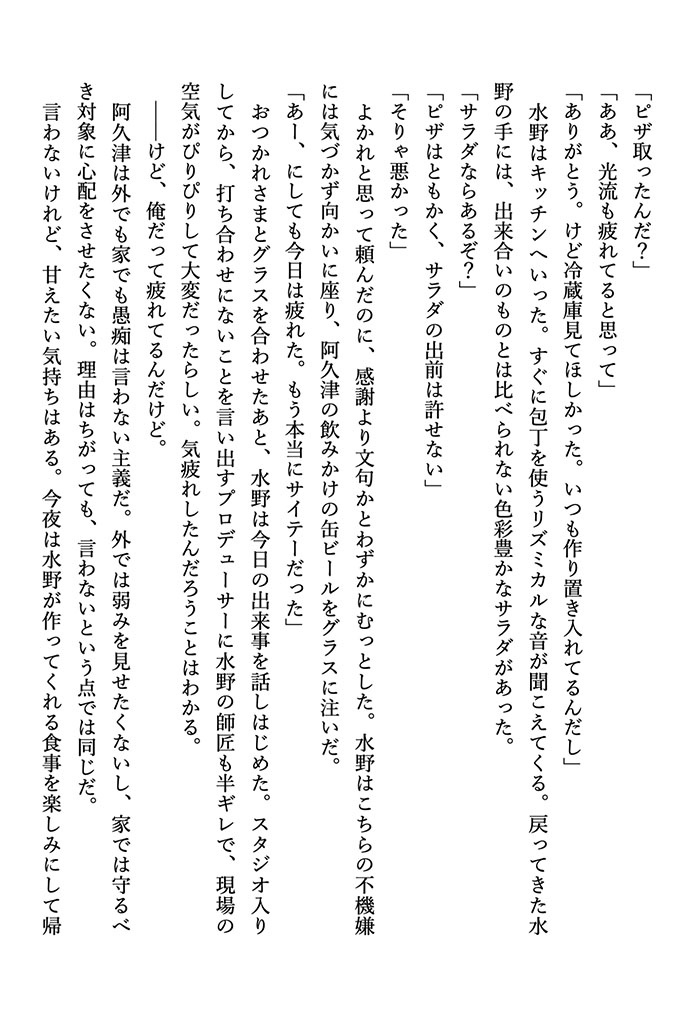 「ピザ取ったんだ？」
「ああ、光流も疲れてると思って」
「ありがとう。けど冷蔵庫見てほしかった。いつも作り置き入れてるんだし」
　水野はキッチンへいった。すぐに包丁を使うリズミカルな音が聞こえてくる。戻ってきた水
野の手には、出来合いのものとは比べられない色彩豊かなサラダがあった。
「サラダならあるぞ？」
「ピザはともかく、サラダの出前は許せない」
「そりゃ悪かった」
　よかれと思って頼んだのに、感謝より文句かとわずかにむっとした。水野はこちらの不機嫌
には気づかず向かいに座り、阿久津の飲みかけの缶ビールをグラスに注いだ。
「あー、にしても今日は疲れた。もう本当にサイテーだった」
　おつかれさまとグラスを合わせたあと、水野は今日の出来事を話しはじめた。スタジオ入り
してから、打ち合わせにないことを言い出すプロデューサーに水野の師匠も半ギレで、現場の
空気がぴりぴりして大変だったらしい。気疲れしたんだろうことはわかる。
　――けど、俺だって疲れてるんだけど。
　阿久津は外でも家でも愚痴は言わない主義だ。外では弱みを見せたくないし、家では守るべ
き対象に心配をさせたくない。理由はちがっても、言わないという点では同じだ。
　言わないけれど、甘えたい気持ちはある。今夜は水野が作ってくれる食事を楽しみにして帰